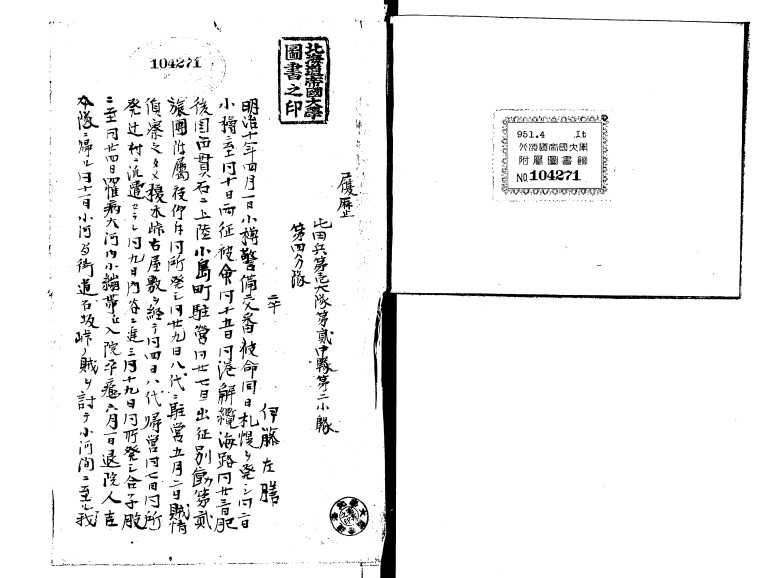 951.4 It
北海道帝國大學
附屬圖書館
No 104271
104271
北海道帝國大學
圖書之印
履歴
屯田兵第壱大隊第貳中隊第二小隊
第四分隊
伊藤左膳
明治十年四月一日小樽警備交番被命同日札幌ヲ発シ同二日
小樽ニ至ル同十日西征被命同十五日同港解纜海路同廿三日肥
後國百貫石ニ上陸小島町駐営同廿七日出征別働第貳
旅團附属被仰付同所発シ同廿九日八代ニ駐営五月二日賊情
偵察之タメ横木峠古屋敷ヲ経テ同四日八代帰営同七日同所
発辻村ニ派遣セラレ同九日内谷ニ進ミ同十九日同所発シ合子股
ニ至ル同廿四日罹病大河内小繃帯ニ入院平癒六月一日退院人吉
本隊ニ帰ル同十一日小河内街道石坂峠ノ賊ヲ討テ小河間ニ至ル我